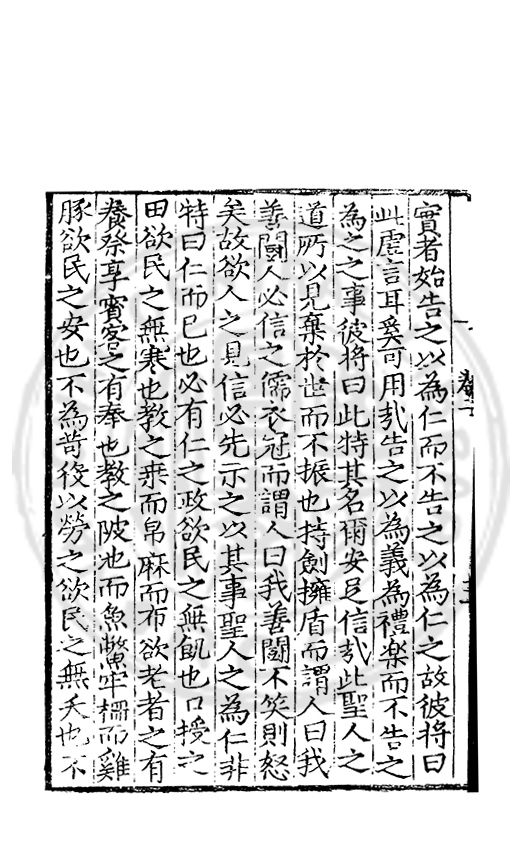 實者始告之以為仁而不告之以為仁之故彼將曰
此虛言耳奚可用哉告之以為義為禮樂而不告之
為之之事彼將曰此特其名爾安足信哉此聖人之
道所以見棄於世而不振也持劍擁盾而謂人曰我
善鬪人必信之儒衣冠而謂人曰我善鬪不笑則怒
矣故欲人之見信必先示之以其事聖人之為仁非
特曰仁而已也必有仁之政欲民之無飢也口授之
田欲民之無寒也教之桒而帛麻而布欲老者之有
養祭享賓客之有奉也教之陂池而魚鱉牢柵而雞
豚欲民之安也不為苛役以勞之欲民之無夭也不
卷一
三